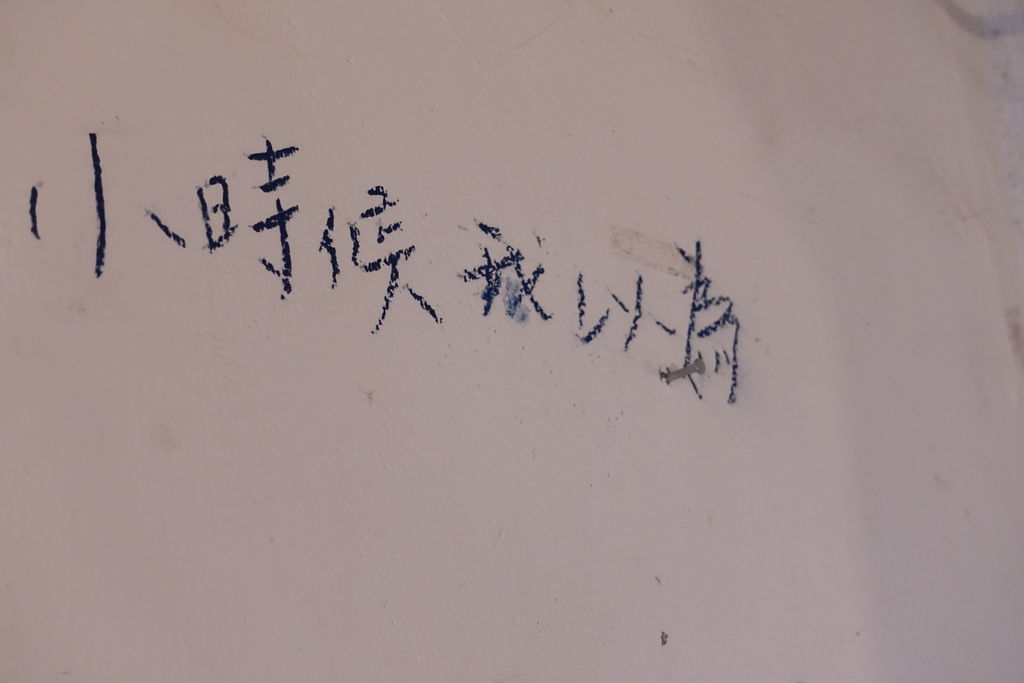 小時候我以為